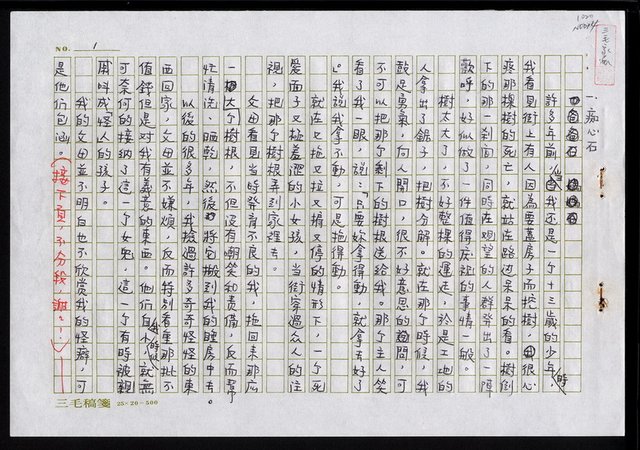 NO. 1
一、痴心石
許多年前,當我還是一個十三歲的少年時,
我看見街上有人因為要蓋房子而挖樹,很心
疼那棵樹的死亡,就站在路邊呆呆的看。樹倒
下的那一剎間,同時在觀望的人群發出了一陣
歡呼,好似做了一件值得慶祝的事情一般。
樹太大了,不好整棵的運走,於是工地的
人拿出了鋸子,把樹分解。就在那個時候,我
鼓足勇氣,向人開口,很不好意思的問,可
不可以把那個剩下的樹根送給我。那個主人笑
看了我一眼,說:「只要妳拿得動,就拿去好了
。」我說我拿不動,可是拖得動。
就在又拖又拉又揹又停的情形下,一個死
愛面子又極羞澀的小女孩,當街穿過眾人的注
視,把那個樹根弄到家裡去。
父母看見當時發育不良的我,拖回來那麼
一大個樹根,不但沒有嘲笑和責備,反而幫
忙清洗、晒乾,然後將它搬到我的睡房中去。
以後的很多年,我撿過許多奇奇怪怪的東
西回家,父母並不嫌煩,反而特別看重那批不
值錢但是對我有意義的東西。他們自我小時候,就無
可奈何的接納了這一個女兒,這一個有時被親
戚叫成怪人的孩子。
我的父母並不明白也不欣賞我的怪癖,可
是他們包涵。(接下頁,不分段,謝謝!)
三毛稿箋 25×20=500